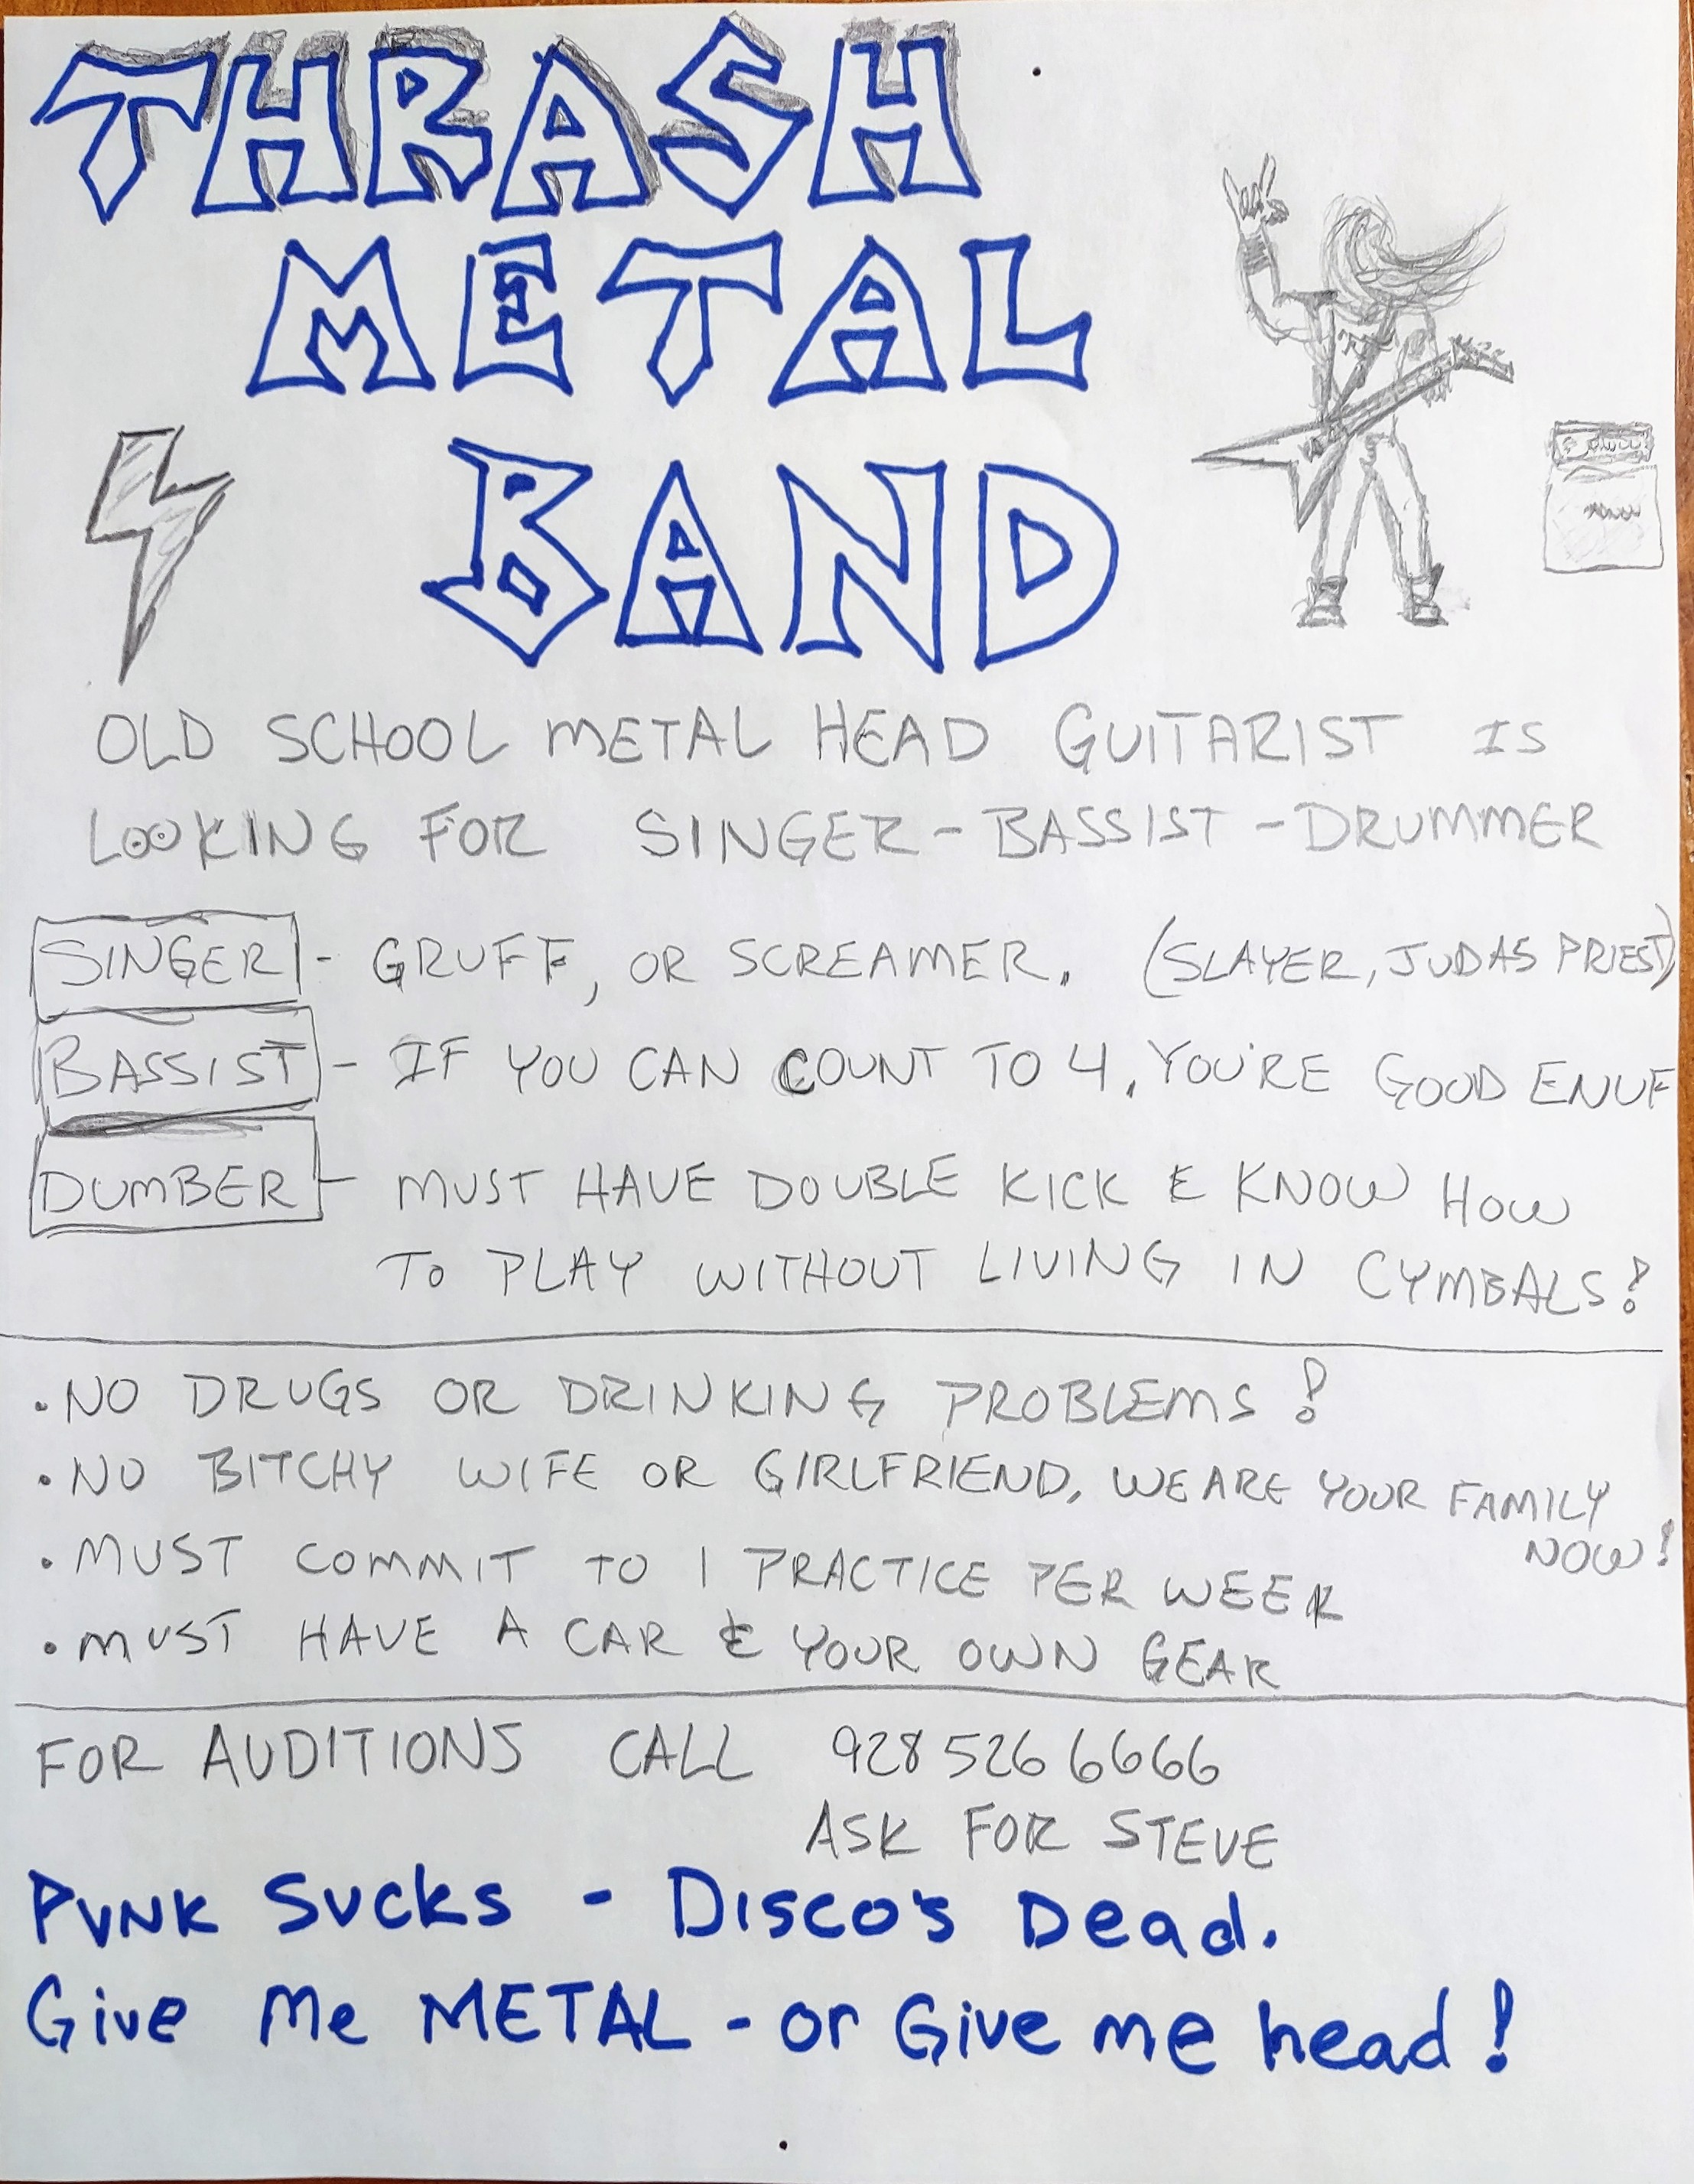 THRASH
METAL
BAND
OLD SCHOOL METAL HEAD GUITARIST IS
LOOKING FOR SINGER - BASSIST - DRUMMER
SINGER - GRUFF, OR SCREAMER. (SLAYER, JUDAS PRIEST)
BASSIST - IF YOU CAN COUNT TO 4, YOU'RE GOOD ENUF
DUMBER - MUST HAVE DOUBLE KICK & KNOW HOW
TO PLAY WITHOUT LIVING IN CYMBALS!
• NO DRUGS OR DRINKING PROBLEMS!
• NO BITCHY WIFE OR GIRLFRIEND, WE ARE YOUR FAMILY
NOW!
• MUST COMMIT TO 1 PRACTICE PER WEEK
• MUST HAVE A CAR & YOUR OWN GEAR
FOR AUDITIONS CALL 928 526 6666
ASK FOR STEVE
PUNK SUCKS - DISCO'S Dead.
Give Me METAL - or Give me head!